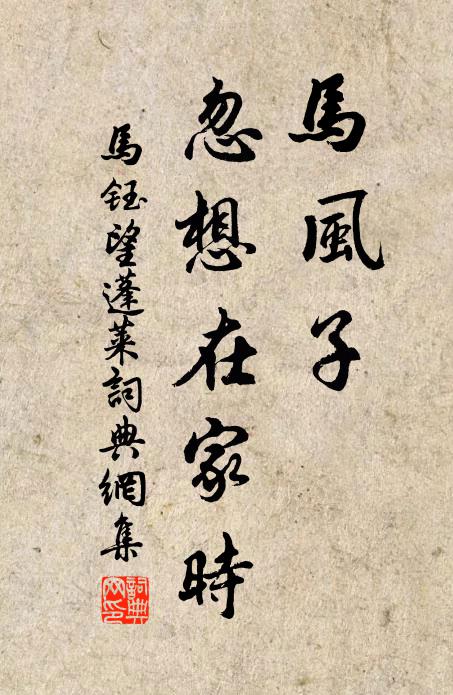 馬風子
忽想在家時
馬鈺望蓬萊詞典網集
詞典
網印